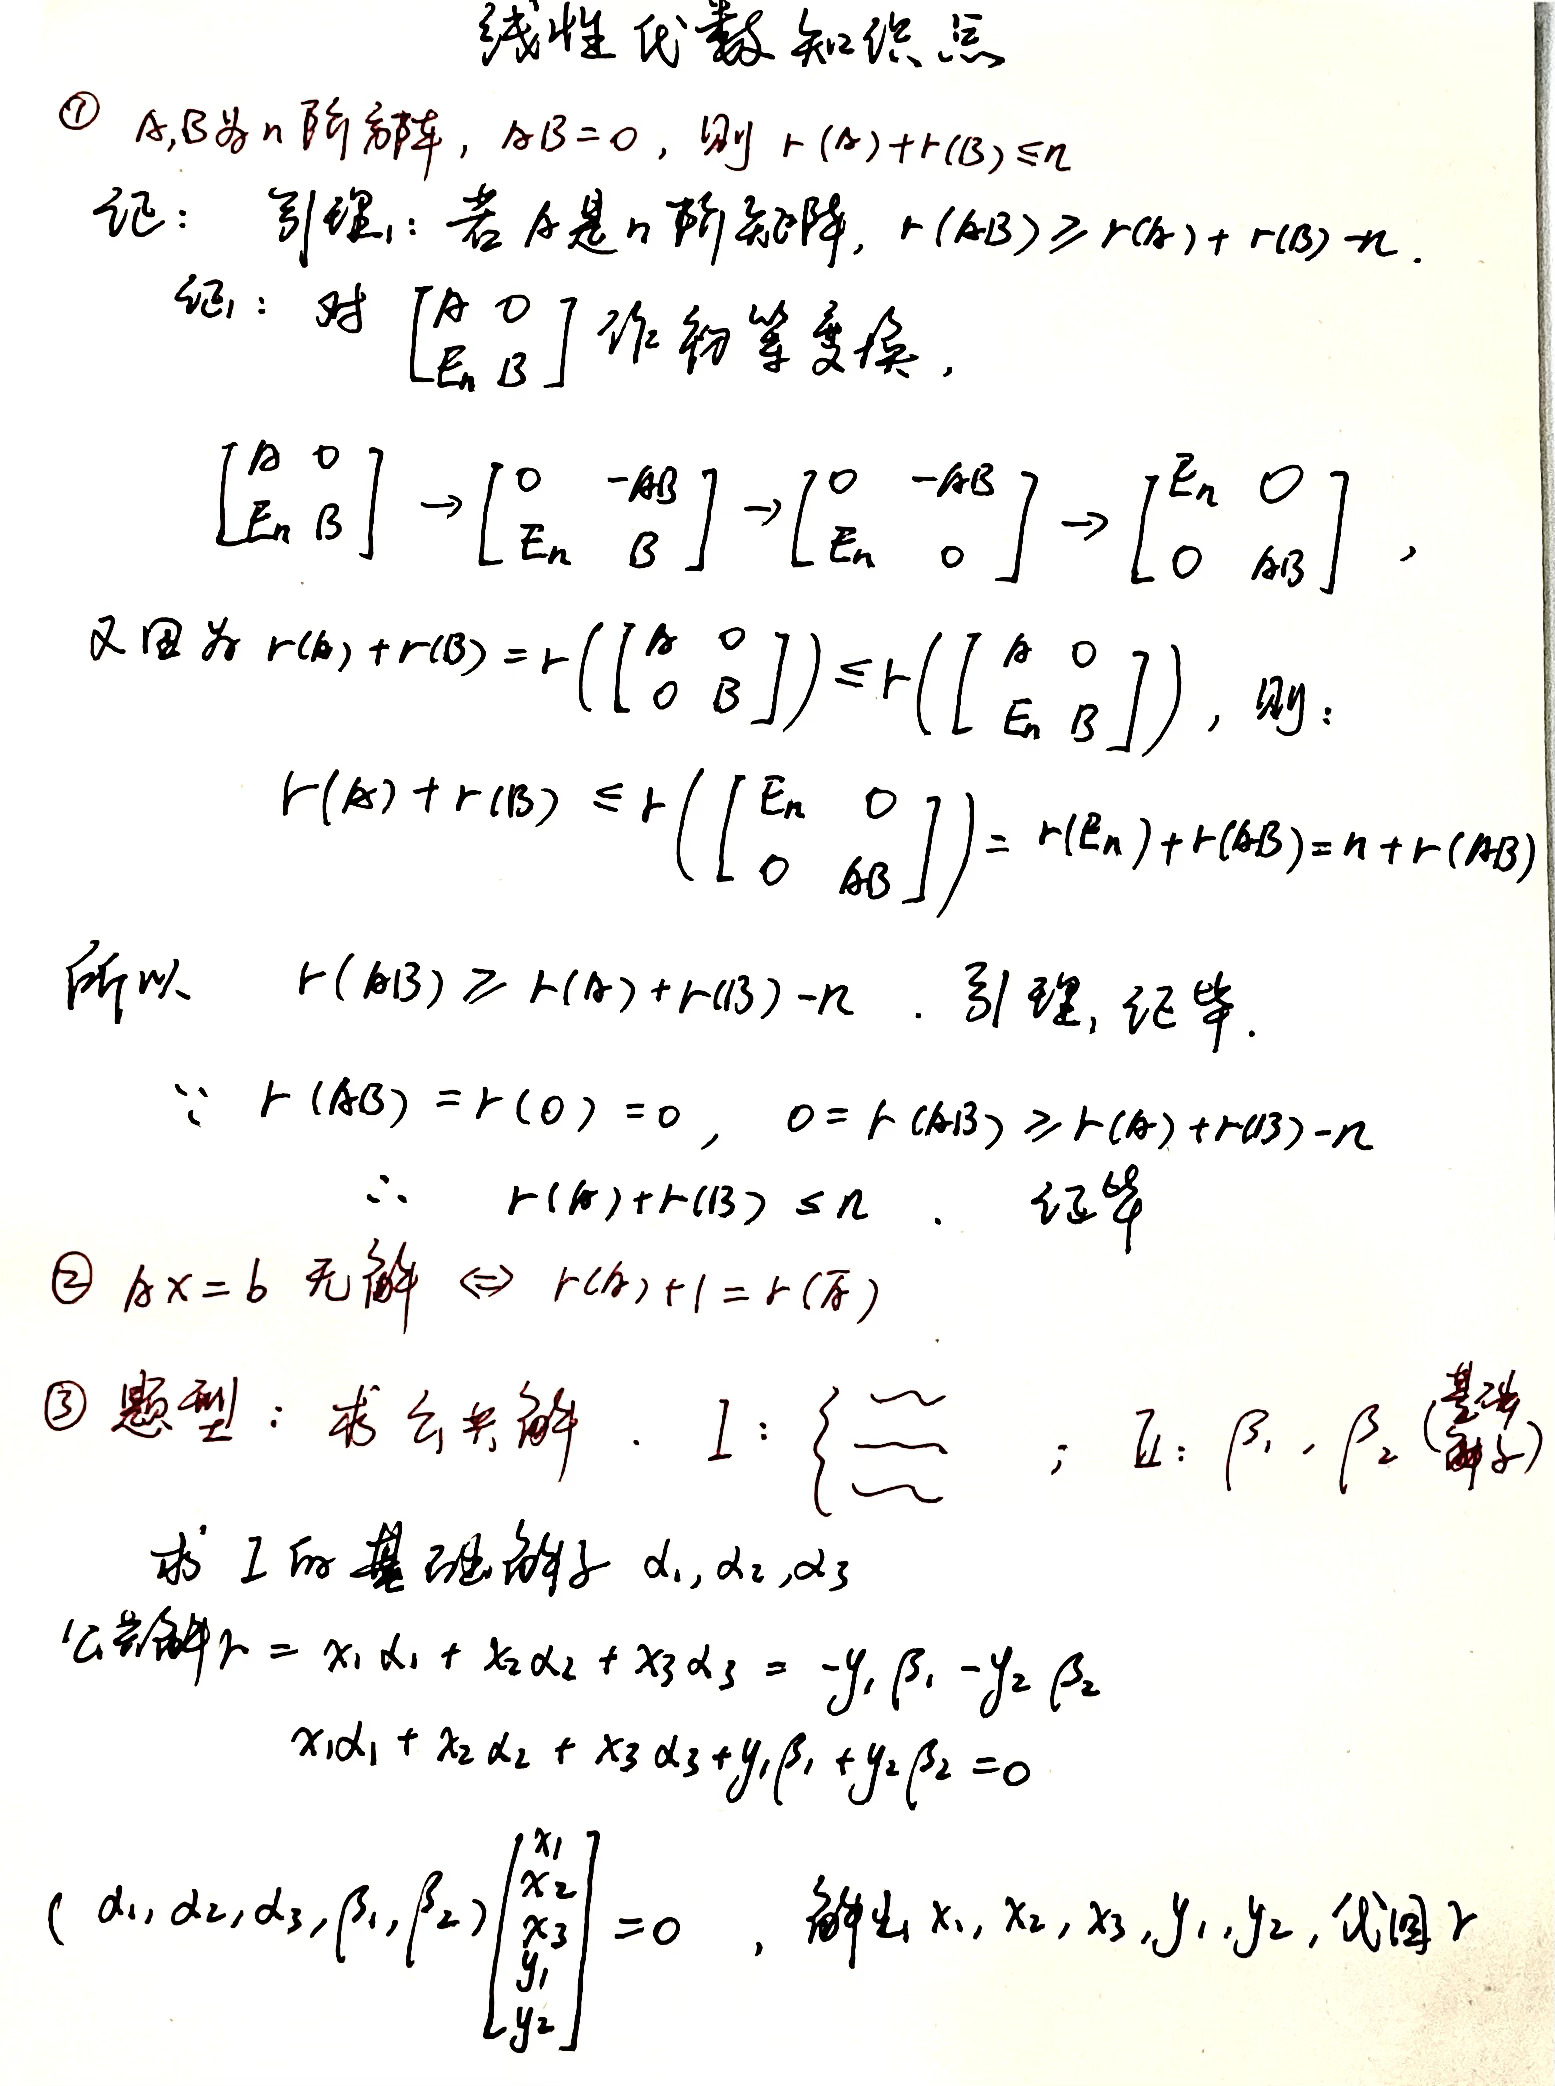 线性代数知识点
① A,B为n阶方阵, AB=0, 则 r(A)+r(B)≤n
证: 引理1: 若A是n阶矩阵, r(AB)≥r(A)+r(B)-n.
证1: 对 [A 0; En B] 作初等变换,
[A 0; En B] → [0 -AB; En B] → [0 -AB; En 0] → [En 0; 0 AB],
又因为 r(A)+r(B)=r([A 0; 0 B])≤r([A 0; En B]), 则:
r(A)+r(B)≤r([En 0; 0 AB])=r(En)+r(AB)=n+r(AB)
所以 r(AB)≥r(A)+r(B)-n. 引理1证毕.
∵ r(AB)=r(0)=0, 0=r(AB)≥r(A)+r(B)-n
∴ r(A)+r(B)≤n. 证毕
② Ax=b 无解 ⇔ r(A)+1=r(Ā)
③ 题型: 求公共解. I: { ; II: β1, β2 (基础解系)
求 I 的基础解系 α1, α2, α3
公共解γ = x1α1+x2α2+x3α3 = -y1β1-y2β2
x1α1+x2α2+x3α3+y1β1+y2β2=0
(α1, α2, α3, β1, β2)[x1; x2; x3; y1; y2]=0, 解出 x1, x2, x3, y1, y2, 代回γ